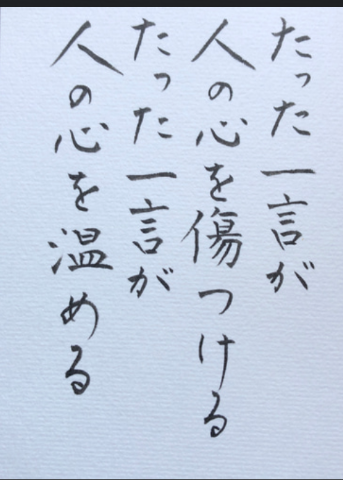 たった一言が
人の心を傷つける
たった一言が
人の心を温める